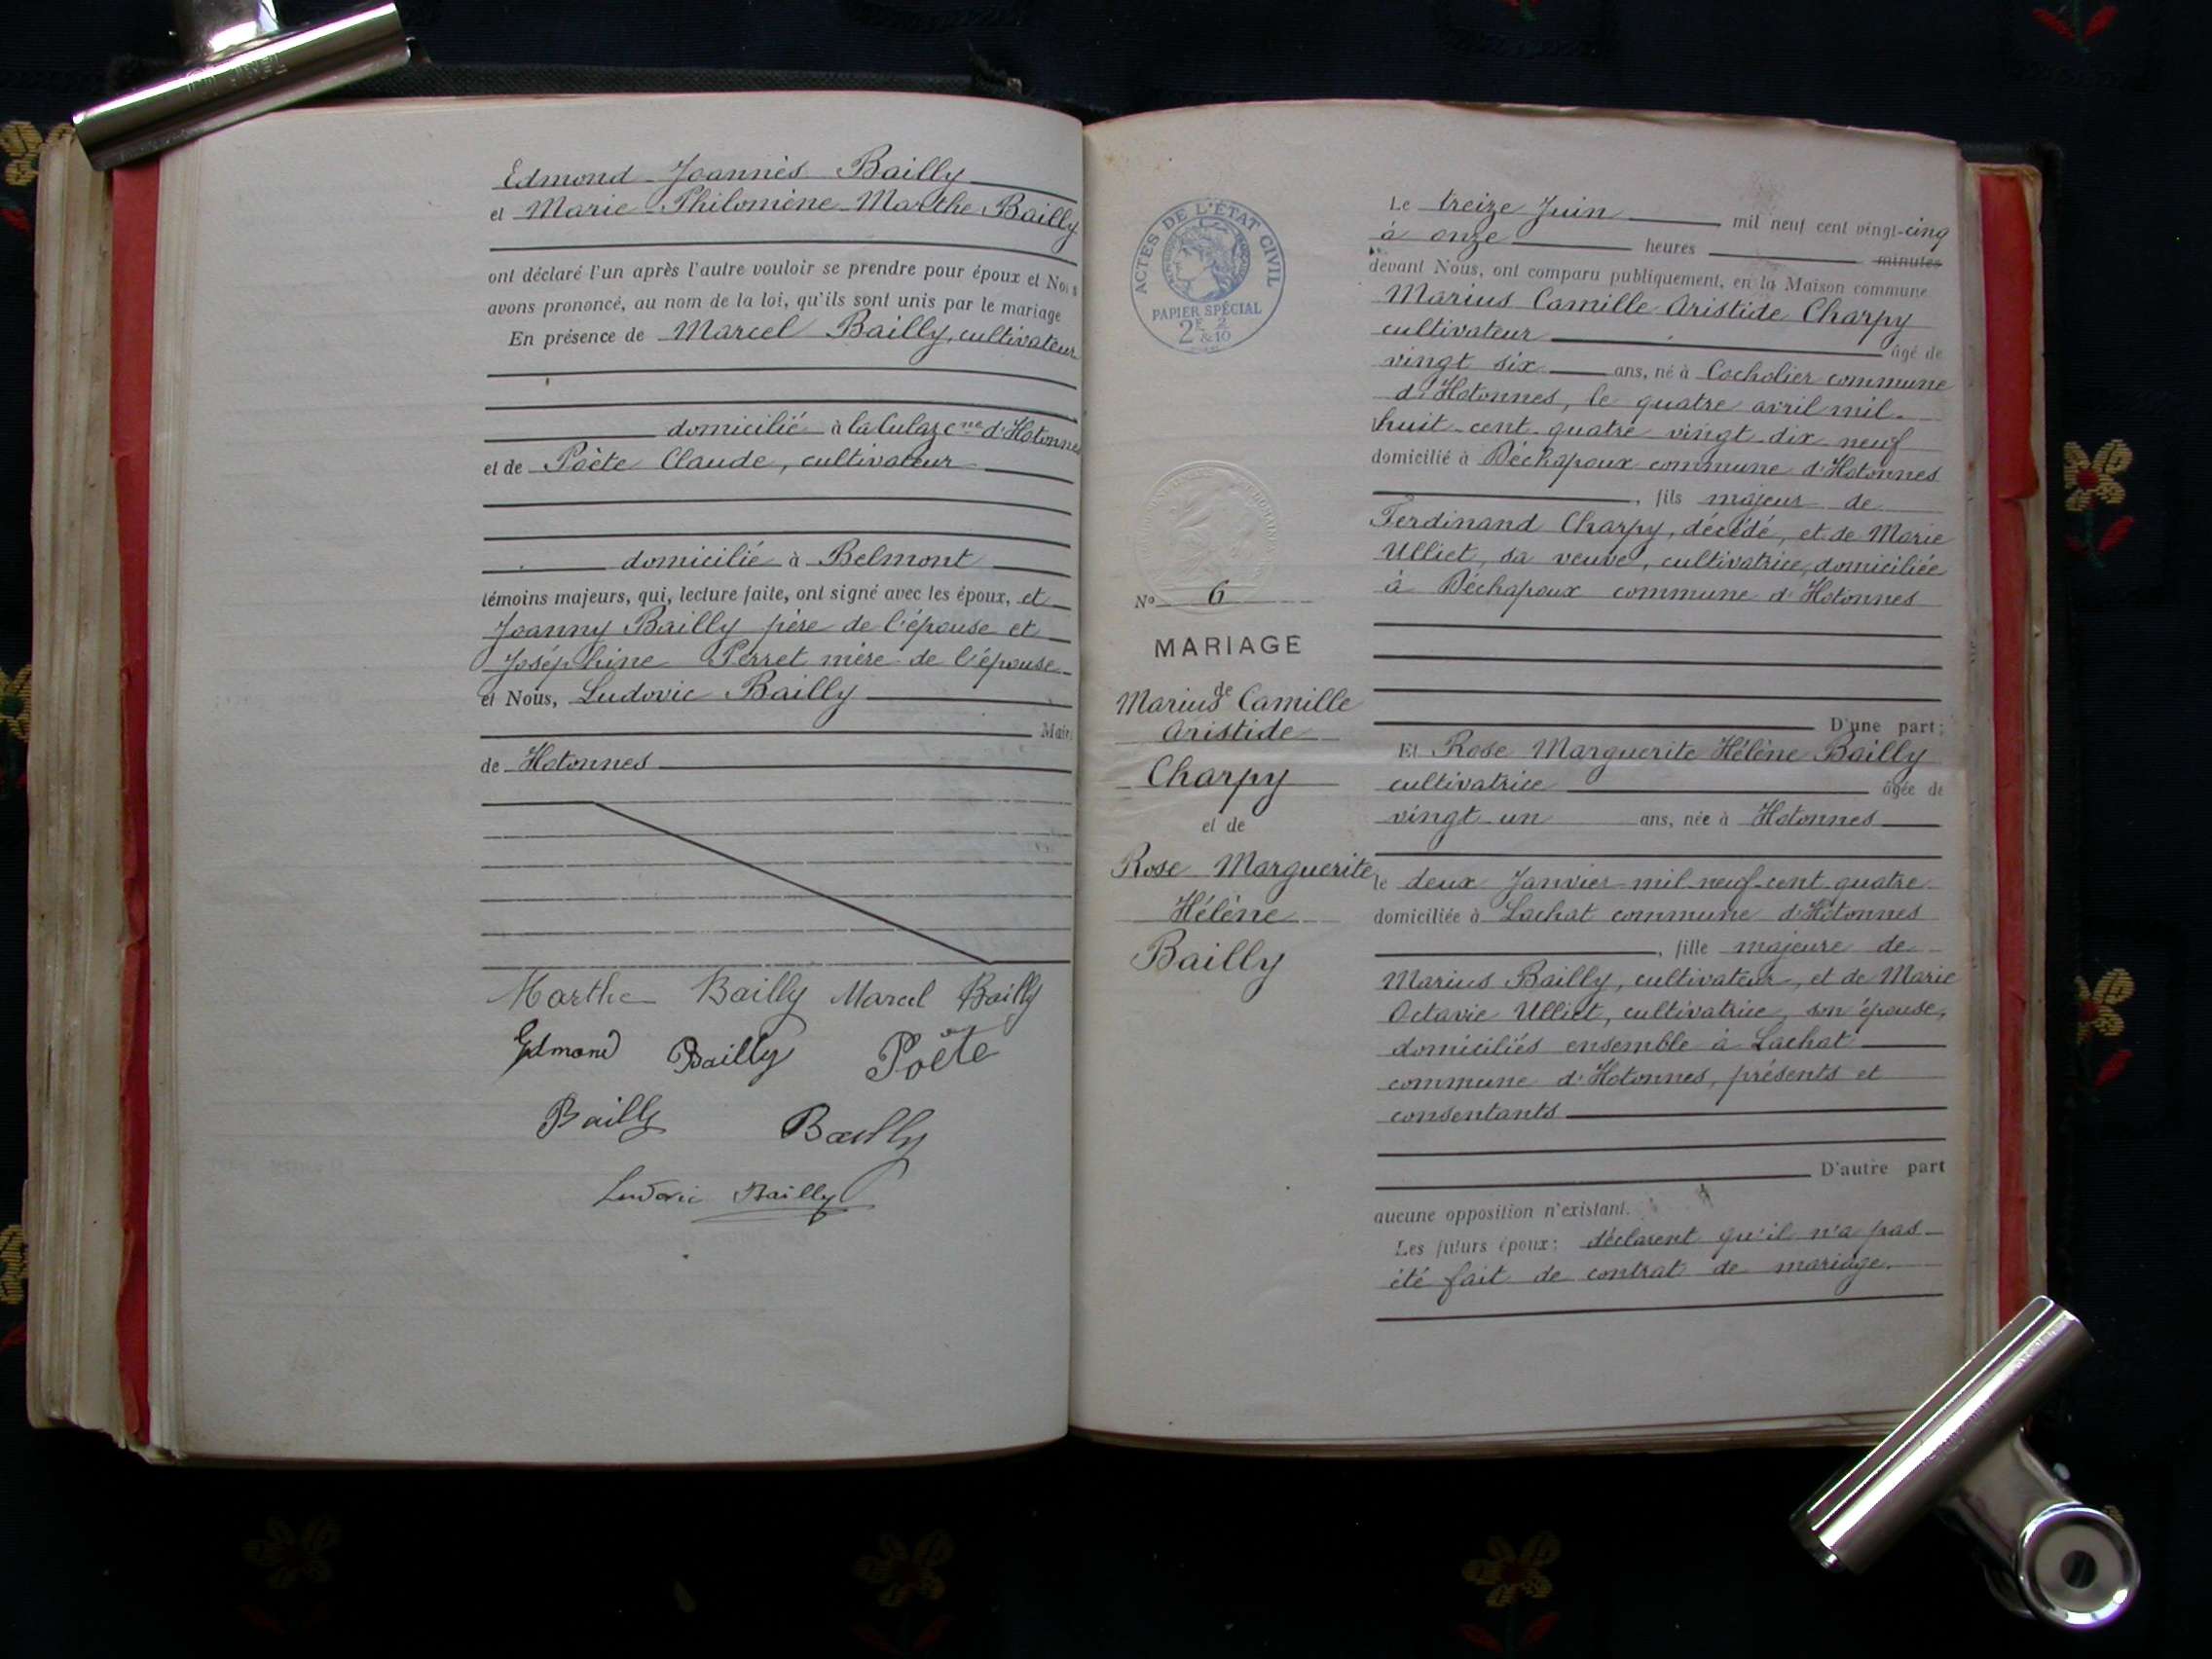 Edmond Joannès Bailly
et Marie Philomène Marthe Bailly
ont déclaré l'un après l'autre vouloir se prendre pour époux et Nous
avons prononcé, au nom de la loi, qu'ils sont unis par le mariage
En présence de Marcel Bailly, cultivateur
domicilié à la Culaz cne d'Hotonnes
et de Poète Claude, cultivateur
domicilié à Belmont
témoins majeurs, qui, lecture faite, ont signé avec les époux, et
Joanny Bailly père de l'épouse et
Joséphine Perret mère de l'épouse
et Nous, Ludovic Bailly
Maire
de Hotonnes
Marthe Bailly Marcel Bailly
Edmond Bailly Poëte
Bailly Bailly
Ludovic Bailly
ACTES DE L'ÉTAT CIVIL
PAPIER SPÉCIAL
2F 2
&10
No 6
MARIAGE
de
Marius Camille
Aristide
Charpy
et de
Rose Marguerite
Hélène
Bailly
Le treize Juin mil neuf cent vingt-cinq
à onze heures minutes
devant Nous, ont comparu publiquement, en la Maison commune
Marius Camille Aristide Charpy
cultivateur âgé de
vingt six ans, né à Cocholier commune
d'Hotonnes, le quatre avril mil
huit cent quatre vingt dix neuf
domicilié à Déchapoux commune d'Hotonnes
, fils majeur de
Ferdinand Charpy, décédé, et de Marie
Ulliet, sa veuve, cultivatrice, domiciliée
à Déchapoux commune d'Hotonnes
D'une part;
Et Rose Marguerite Hélène Bailly
cultivatrice âgée de
vingt un ans, née à Hotonnes
le deux Janvier mil neuf cent quatre
domiciliée à Lachat commune d'Hotonnes
, fille majeure de
Marius Bailly, cultivateur, et de Marie
Octavie Ulliet, cultivatrice, son épouse,
domiciliés ensemble à Lachat
commune d'Hotonnes, présents et
consentants
D'autre part
aucune opposition n'existant.
Les futurs époux: déclarent qu'il n'a pas
été fait de contrat de mariage.